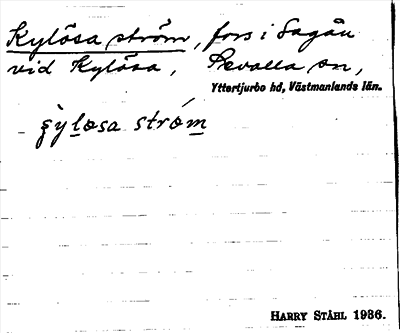 Kylösa ström, fors i Sagån
vid Kylösa, Revalla sn,
Yttertjurbo hd, Västmanlands län.
ʂỳlosa stróm
HARRY STÅHL 1936.